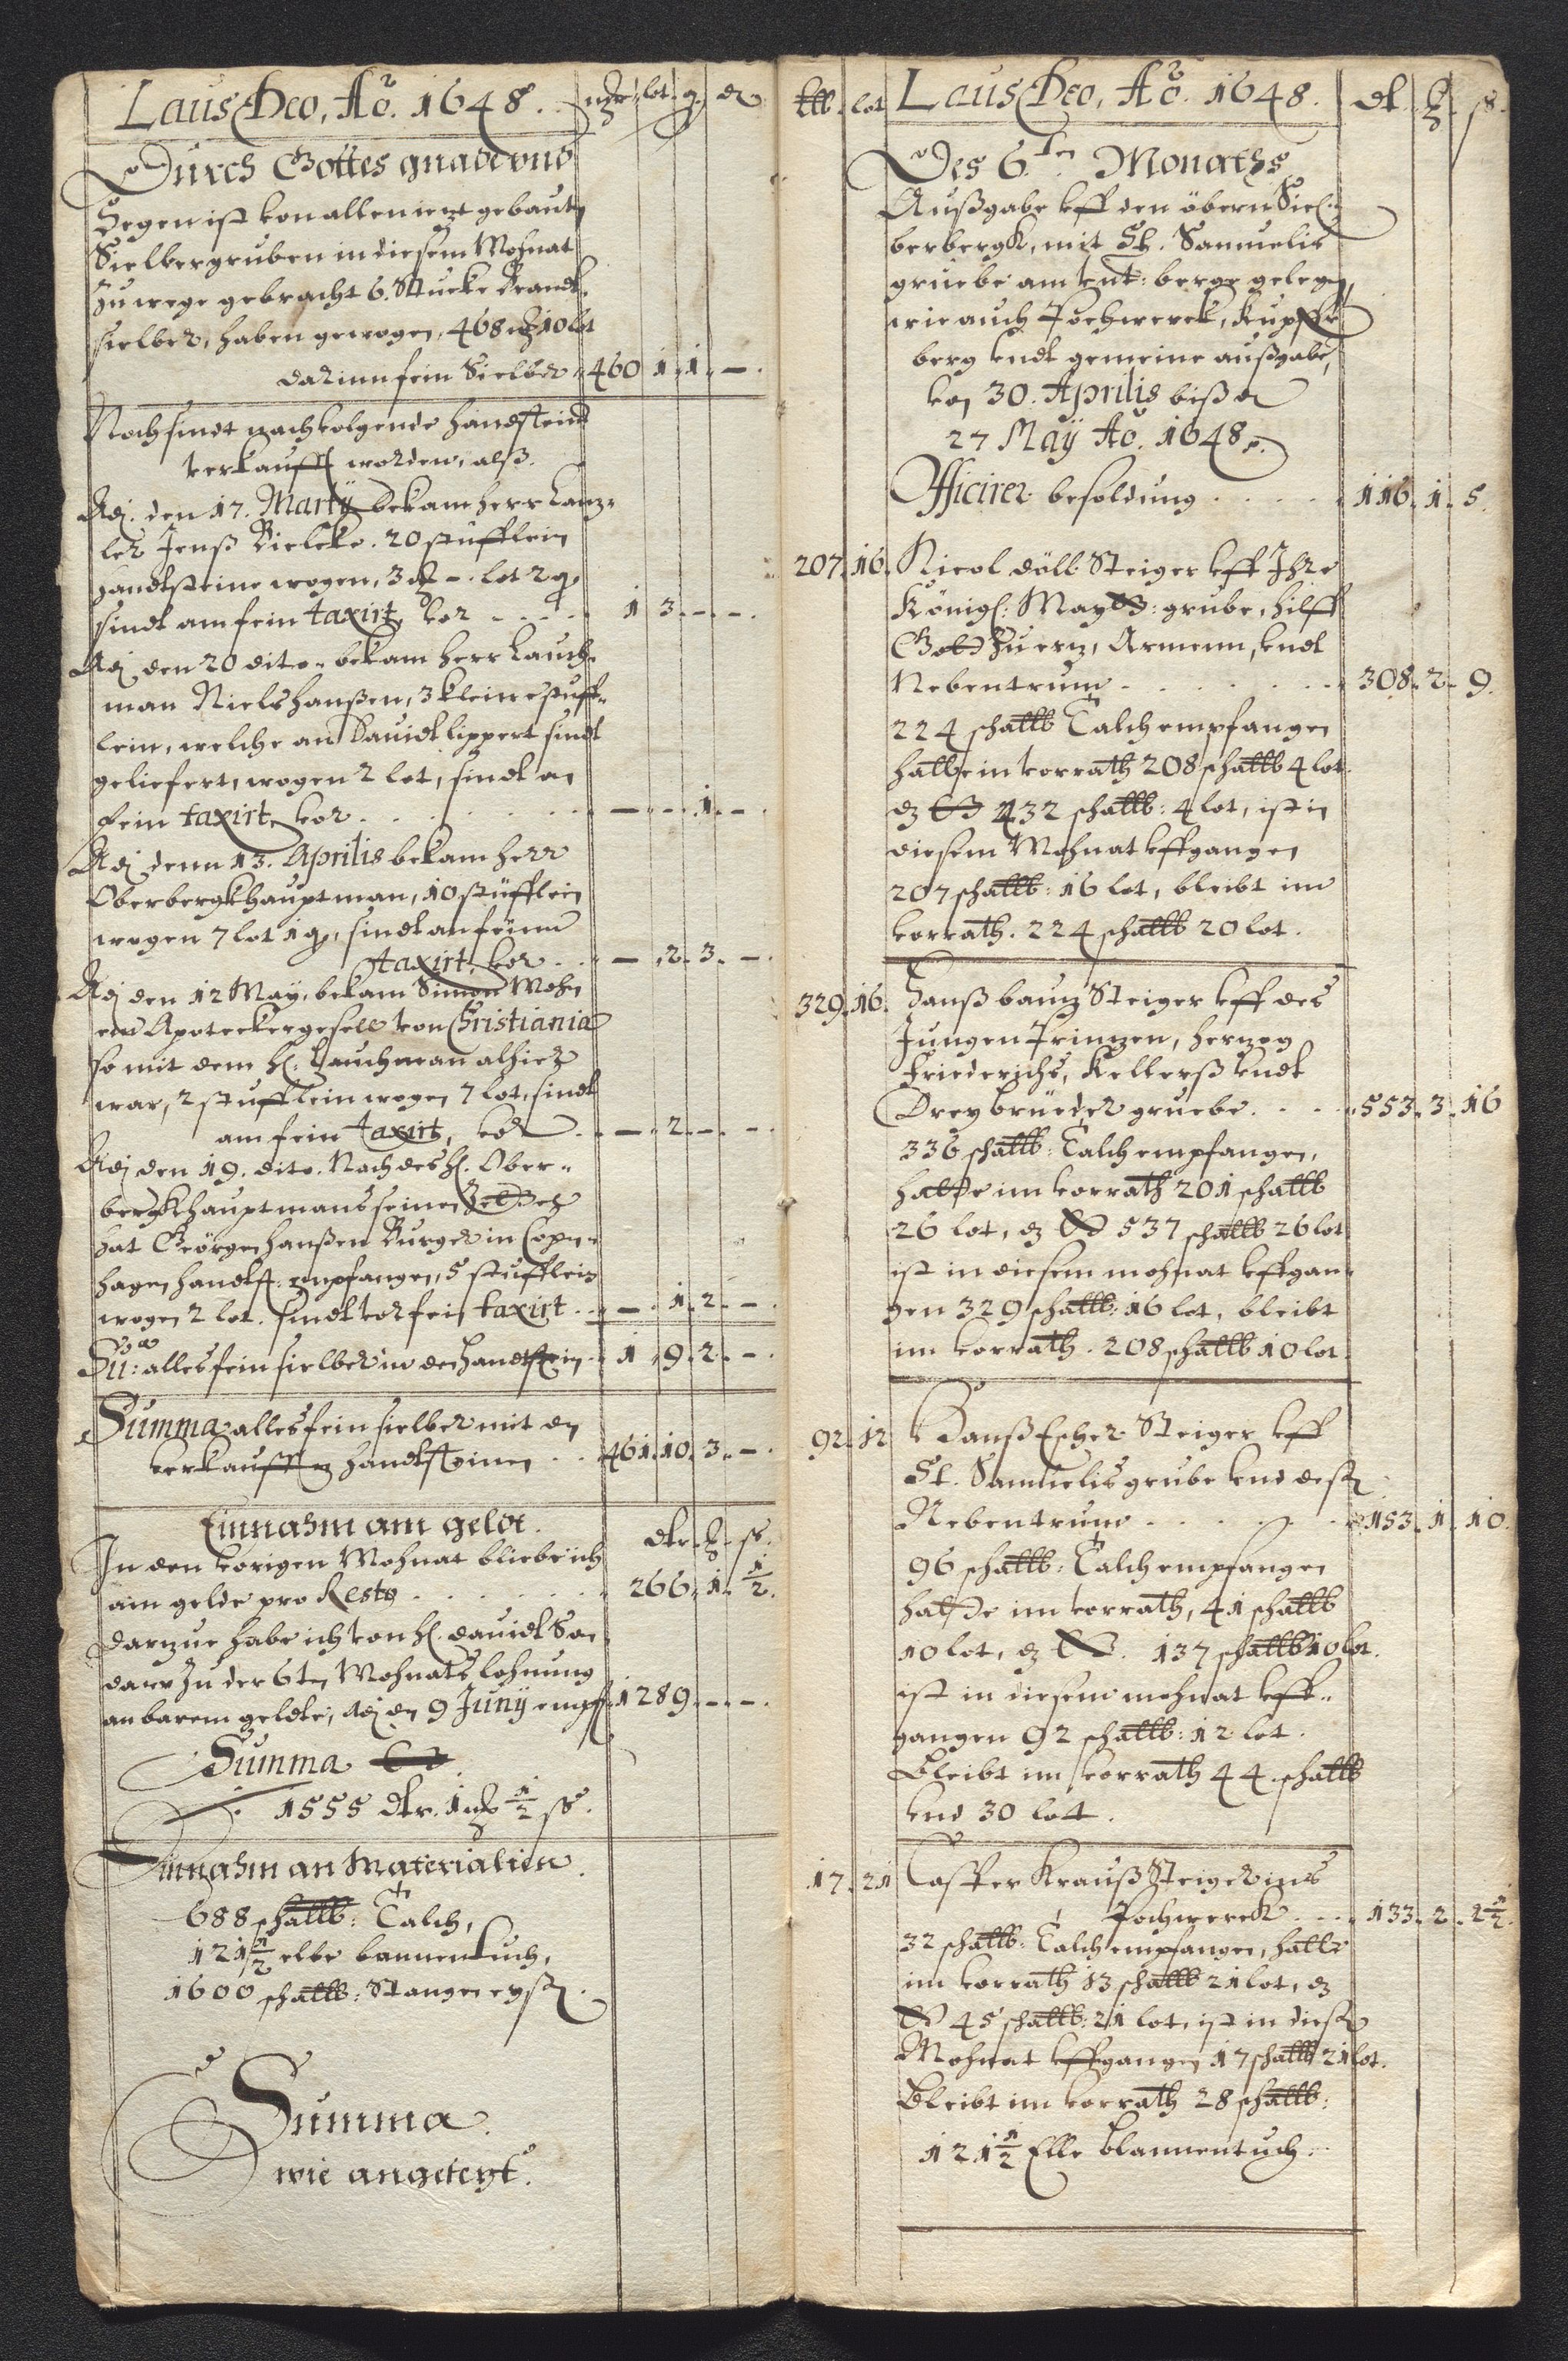 Laus Deo, Ao. 1648. mk lot q. d
Durch Gottes gnade vnd
Segen ist von allen iezt gebautn
Sielbergruben in diesem Mohnat
Zu wege gebracht 6. Stucke Brandt
sielber, haben gewogen, 468 mk 10 lot
darinn fein Sielber 460 1 1 –
Noch sindt nachvolgende handtstein
verkaufft worden, alß.
Adj. den 17. Martij bekam herr Canz-
ler Jenß Bielcke. 20 stufflein
handtsteine wogen, 3 mk –. lot 2 q.
sindt am fein taxirt, vor 1 3 – –
Adj den 20 dito. bekam herr Lauch-
man Niels Hanßen, 3 kleine stuff-
lein, welche an Dauidt Lippert sindt
geliefert, wogen 2 lot, sindt an
fein taxirt, vor – – 1 –
Adj denn 13. Aprilis bekam herr
Oberbergkhauptman, 10 stüfflein
wogen 7 lot 1 q, sindt an feinn
taxirt, vor – 2 3 –
Adj den 12 May, bekam Simon Mohr
ein Apoteckergesell von Christiania
so mit dem H: Lauchman alhier
war, 2 stufflein wogen 7 lot, sindt
am fein taxirt, vor – 2 – –
Adj den 19. dito. Nach des H. Ober-
bergkhauptmans seinen Zettel
hat Geörgen Hanßen Burger in Copn-
hagen handtst: empfangen, 5 stufflein
wogen 2 lot. sindt vor fein taxirt – 1 2 –
Su: alles fein sielber in den handtstein 1 9 2 –
Summa alles fein sielber mit den
verkaufften handtsteinen 461 10 3 –
Einnahm am geldt.
In den vorigen Mohnat bliebe ich dlr. mk ß.
am gelde pro Resto 266 1 1/2
Darzue habe ich von H. dauidt
zu der 6ten Mohnats lohnung
an barem geldte, Adj den 9 Junij empf 1289 – –
Summa
1555 Dlr. 1 mk 1/2 ß.
Einnahm an Materialien.
688 schallb: Talch,
121 1/2 elle
1600 schallb: Stangen eysen.
Summa.
wie angeregt.
lb lot Laus Deo, Ao. 1648. dl. mk ß.
Des 6ten Monaths
Außgabe vff den öbern Siel-
bergk, mit St. Samuelis
gruebe am vnt: berge gelegen,
wie auch Pochwerck, Kupffer
berg vndt gemeine außgabe,
von 30. Aprilis biß den
27 Maÿ Ao. 1648.
Officirer besoldung 116 1 5
207 16 Nicol döll Steiger vff Ihre
Königl: Maytt: grube, hilff
Gott Zu ernz, Armenn, vndt
Nebentrum 308 2 9
224 schallb Talch empfangen
hatte in vorrath 208 schallb 4 lot
432 schallb: 4 lot, ist in
diesem Mohnat vffgangen
207 schallb: 16 lot, bleibt im
vorrath. 224 schallb 20 lot.
329 16 Hanß bauz Steiger vff des
Jungen Printzen, herzog
Friederichs, Kellerß vndt
Drey brüeder gruebe 553 3 16
336 schallb: Talch empfangen,
hatte im vorrath 201 schallb
26 lot, 537 schallb 26 lot
ist in diesem mohnat vffgan-
gen 329 schallb: 16 lot, bleibt
im vorrath. 208 schallb 10 lot
92 12 Hanß Escher Steiger vff
St. Samuelis grube vnd deßen
Nebentrum 153 1 10
96 schallb: Talch empfangen
hatte im vorrath, 41 schallb
10 lot, 137 schallb 10 lot.
ist in diesem mohnat vff-
gangen 92 schallb: 12 lot.
Bleibt im vorrath 44 schallb
vnd 30 lot.
17 21 Casper Krauß Steiger ins
Pochwerck 133 2 2 1/2
32 schallb: Talch empfangen, hatte
im vorrath 13 schallb 21 lot,
45 schallb: 21 lot, ist in diesen
Mohnat vffgangen 17 schallb 21 lot.
Bleibt im vorrath 28 schallb:
121 1/2 Elle blannentuch